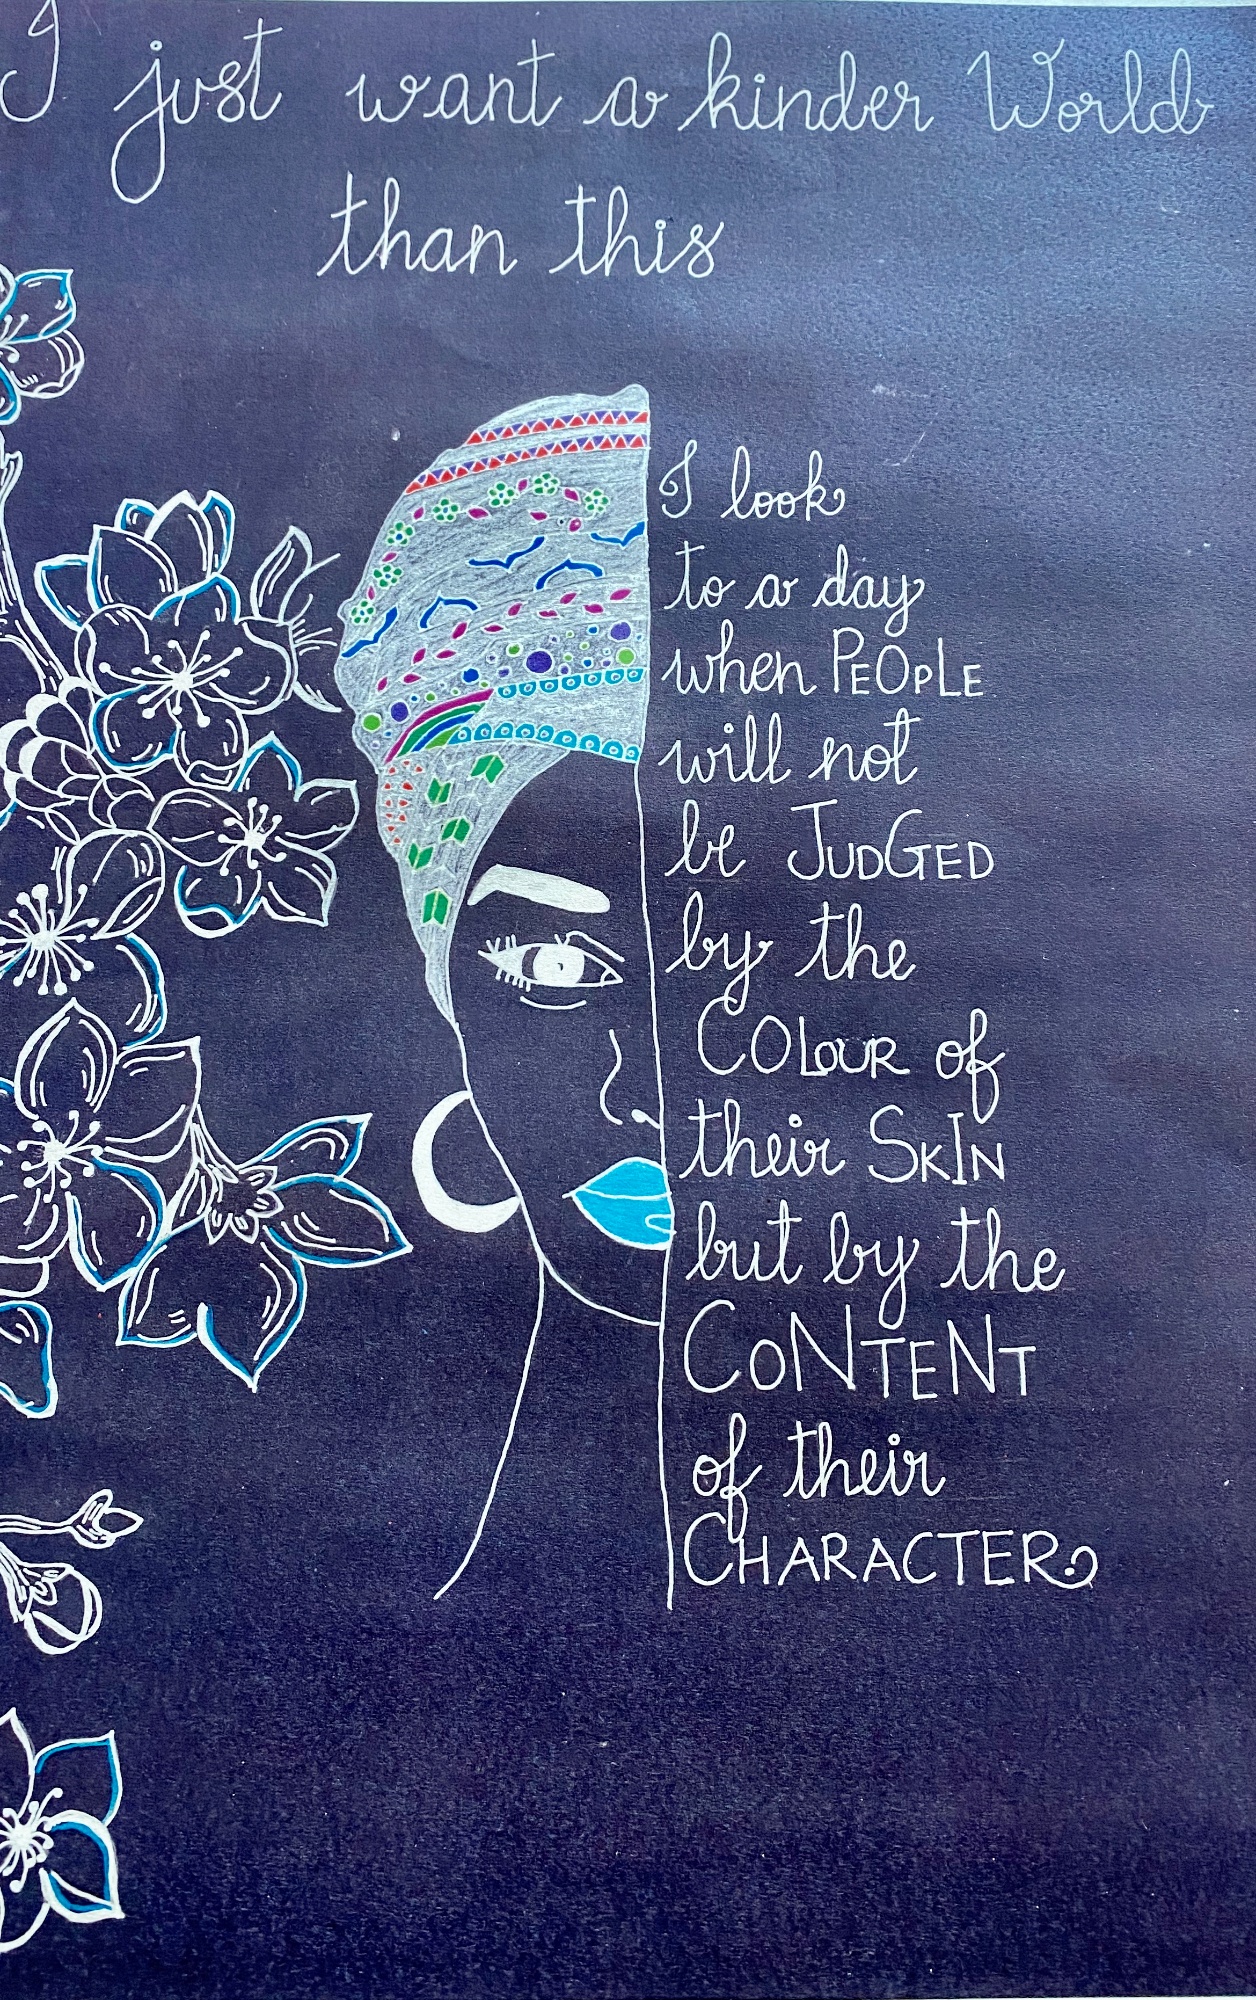 I just want a kinder World
than this
I look
to a day
when PEOPLE
will not
be JUDGED
by the
COLOUR of
their SKIN
but by the
CONTENT
of their
CHARACTER